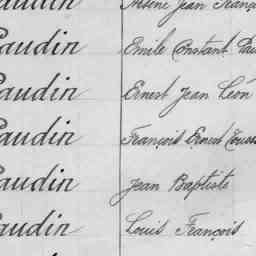 Jean Franç
audin Emile Constant
audin Ernest Jean Léon
audin François Ernest
audin Jean Baptiste
audin Louis François